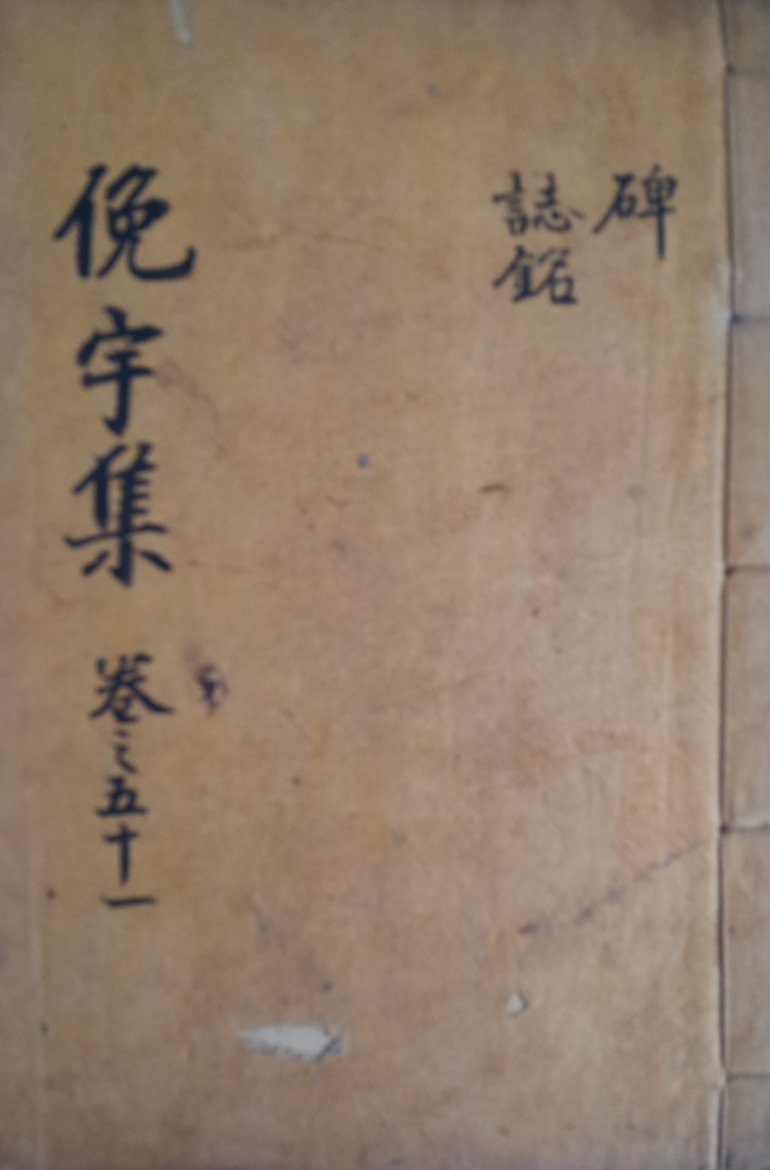 碑
誌銘
俛宇集 卷之五十一